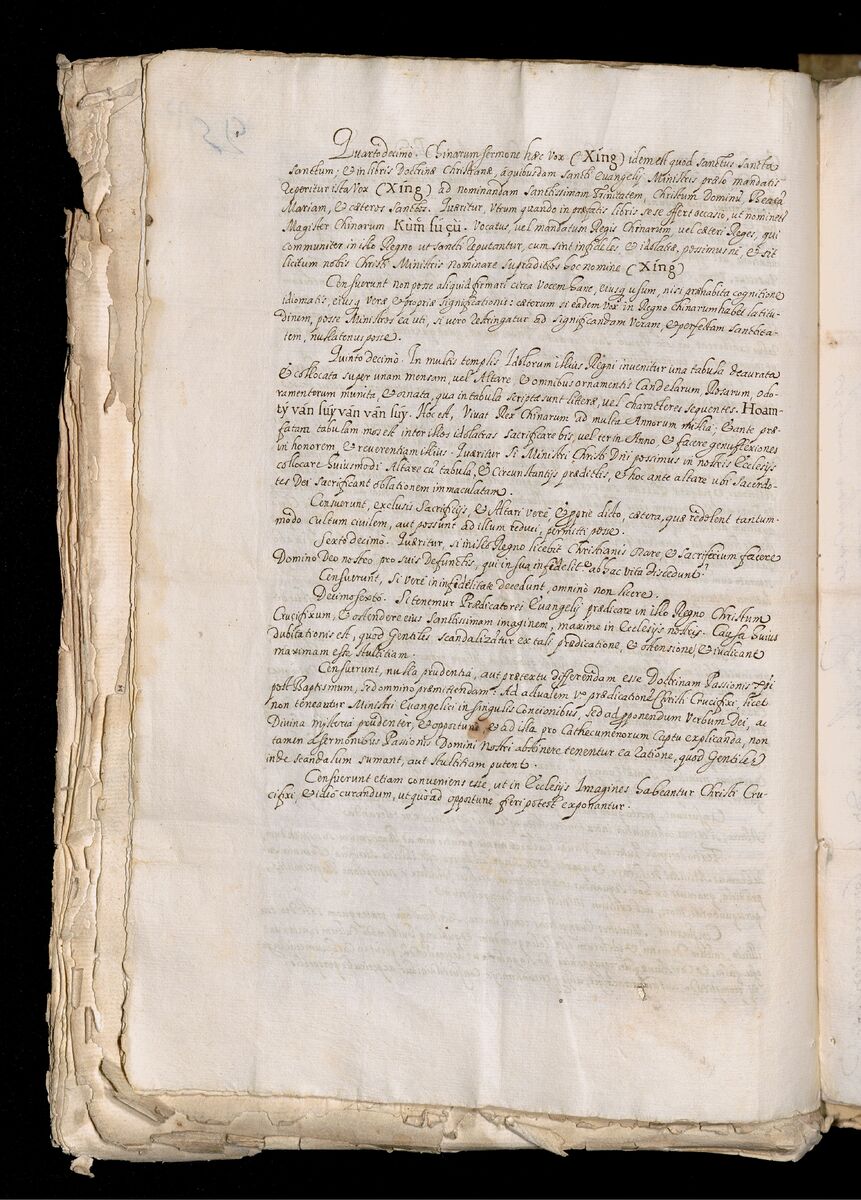 Quartodecimò. Chinarum sermone hæc vox (Xíng) idem est quod sanctus sancta
sanctum, & in libris Doctrinæ Christianæ, à quibusdam Sancti Evangelij Ministris prælo mandatis
reperitur ista vox (Xíng) ad nominandam Santissimam Trinitatem, Christum Dominũ, Beatã
Mariam, & cæteros Sanctos. Quæritur, Utrum quando in præfatis libris sese offert occasio, ut nominet
Magister Chinarum Kum̃ fú çú. vocatus, vel mandatum Regis Chinarum, vel cæteri Reges, qui
communiter in illo Regno ut sancti reputantur, cum sint infideles & idolatræ, possimus nè, & sit
licitum nobis Christi Ministris nominare supradictos hoc nomine (Xíng)
Censuerunt non posse aliquid firmari circa vocem hanc, eiusq usum, nisi præhabita cognitione
idiomatis, eiusq veræ & propriæ significationis: cæterum si eadem vox in Regno Chinarum habet latitu-
dinem, posse Ministros ea uti, si vero restringatur ad significandam veram, & perfectam sanctita-
tem, nullatenus posse.
Quinto decimò. In multis templis Idolorum illius Regni invenitur una tabula deaurata
& collocata super unam mensam, vel Altare, & omnibus ornamentis Candelarum, Rosarum, odo-
ramentorum munita, & ornata, qua in tabula scriptæ sunt litteræ, vel characteres sequentes. Hoam-
tý ván súy ván ván súy. Hoc est, Vivat Rex Chinarum ad multa Annorum millia; & ante præ-
fatam tabulam mos est inter illos idolatras sacrificare bis, vel ter in Anno & facere genuflexiones
in honorem, & reverentiam illius. Quæritur Si Ministri Christi Dñi possimus in nostris Ecclesijs
collocare huiusmodi Altare cũ tabula, & circunstantijs prædictis, & hoc ante altare ubi Sacerdo-
tes Dei sacrificant oblationem immaculatam.
Censuerunt, exclusis Sacrificijs, & Altari verè & pprie dicto, cætera, quæ redolent tantum-
modo cultum civilem, aut possunt ad illum reduci, permitti posse.
Sexto decimò. Quæritur, si in illo Regno licebit Christianis orare & sacrificium facere
Domino Deo nostro pro suis Defunctis, qui in sua infidelit.ᵉ ab hac vita discedunt?
Censuerunt, si verè in infidelitate decedunt, omninò non licere.
Decimosexto. Si tenemur Prædicatores Evangelij prædicare in illo Regno Christum
Crucifixum, & ostendere eius santissimam imaginem, maxime in Ecclesijs nostris. Causa huius
dubitationis est, quod Gentiles scandalizãtur ex tali prædicatione, & ostensione, & iudicant
maximam esse stultitiam.
Censuerunt, nulla prudentia, aut prætextu differendam esse Doctrinam Passionis Xpi
post Baptismum, sed omnino præmittendam: Ad actualem vº prædicationẽ Christi Crucifixi, licet
non teneantur Ministri Evangelici in singulis Concionibus, sed ad pponendum Verbum Dei, ac
Divina mysteria prudenter, & opportunè, & ad illa pro Cathecumenorum captu explicanda, non
tamen à sermonibus Passionis Domini Nostri abstinere tenentur ea ratione, quod Gentiles
inde scandalum sumant, aut stultitiam putent.
Censuerunt etiam conveniens esse, ut in Ecclesijs Imagines habeantur Christi Cru-
cifixi, & ideò curandum, ut quoad opportune fieri potest exponantur.